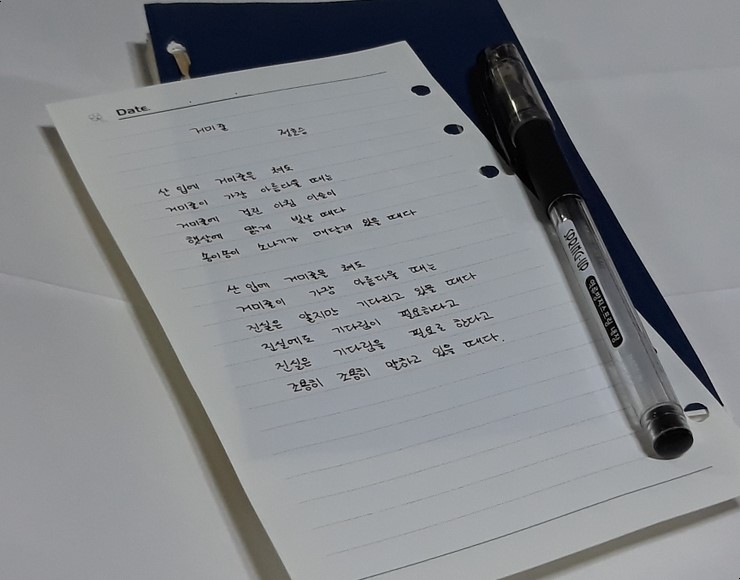 Date
거미줄 정호승
산 입에 거미줄은 쳐도
거미줄이 가장 아름다울 때는
거미줄에 걸린 아침 이슬이
햇살에 맑게 빛날 때다
송이송이 소나기가 매달려 있을 때다
산 입에 거미줄은 쳐도
거미줄이 가장 아름다울 때는
진실은 알지만 기다리고 있을 때다
진실에도 기다림이 필요하다고
진실은 기다림을 필요로 한다고
조용히 조용히 말하고 있을 때다.
SPRING-UP
역류방지스프링 내장